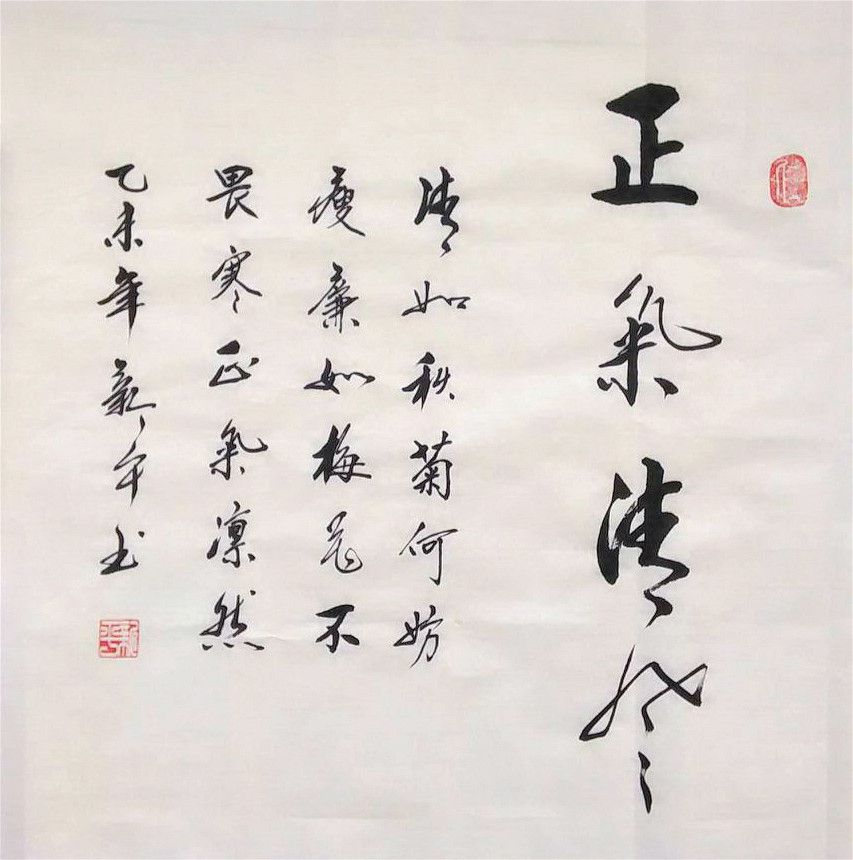 正氣清風
清如秋菊何妨
瘦廉如梅花不
畏寒正氣凛然
乙未年新平书